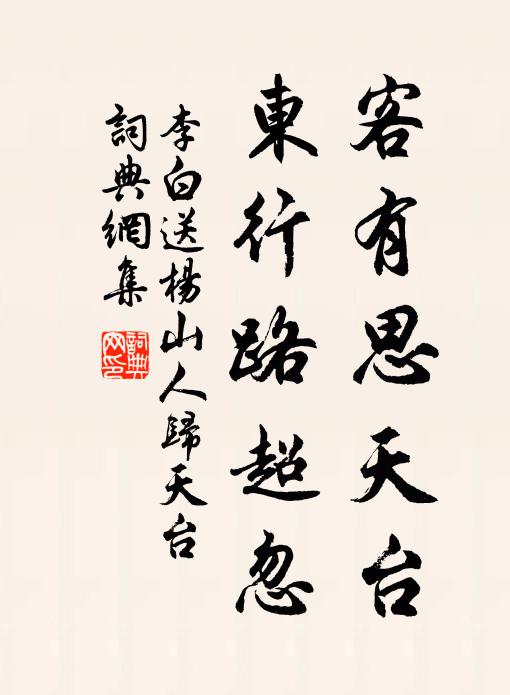 客有思天台
東行路超忽
李白送楊山人歸天台
詞典網集
詞典網印